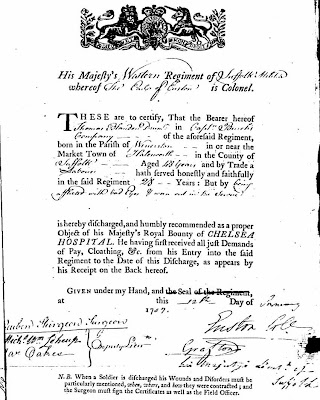 His Majesty's Western Regiment of Suffolk Militia
whereof The Earl of Euston is Colonel.
THESE are to certify, That the Bearer hereof
Thomas in Captn
Company of the aforesaid Regiment,
born in the Parish of in or near the
Market Town of in the County of
Suffolk Aged 48 Years and by Trade a
Labourer hath served honestly and faithfully
in the said Regiment 28 Years: But by being
afflicted with bad Eyes & worn out in the Service
is hereby discharged, and humbly recommended as a proper
Object of his Majesty's Royal Bounty of CHELSEA
HOSPITAL. He having first received all just Demands
of Pay, Cloathing, &c. from his Entry into the said
Regiment to the Date of this Discharge, as appears by
his Receipt on the Back hereof.
GIVEN under my Hand, and the Seal of the Regiment,
at this 12th Day of January
Reuben Sturgeon Surgeon
Euston Col.
Oakes
Grafton
his Majesty's Lieut. of
Suffolk
N. B. When a Soldier is discharged his Wounds and Disorders must be
particularly mentioned, when, where, and how they were contracted; and
the Surgeon must sign the Certificates as well as the Field Officer.